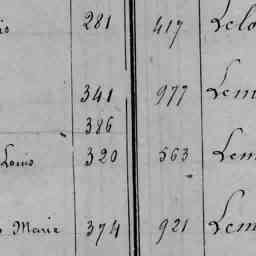 281 417
341 977 Lem
386
Louis 320 563 Lem
Marie 374 921 Lem